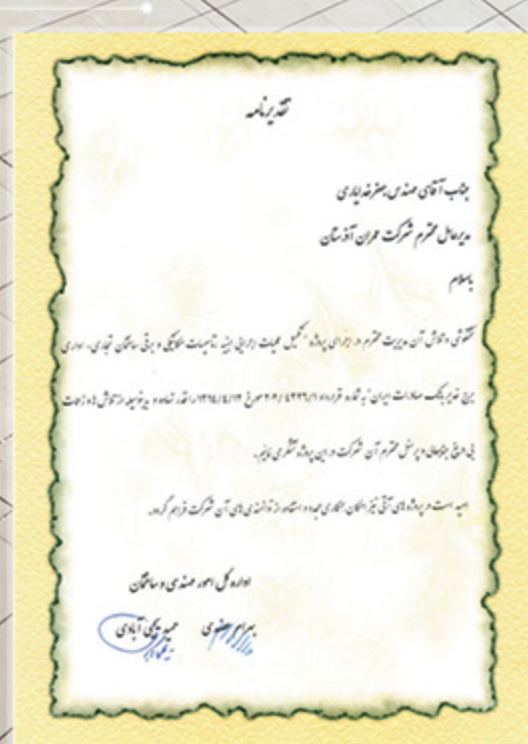 تقدیرنامه
جناب آقای مهندس جعفر خدایاری
مدیرعامل محترم شرکت عمران آذرستان
باسلام
تلاش آن مدیریت محترم در اجرای پروژه "تکمیل عملیات اجرایی ابنیه، تاسیسات مکانیکی و برقی ساختمان تجاری - اداری
برج غدیر بانک صادرات ایران" به شماره قرارداد مورخ را تقدیر نموده و بدینوسیله از تلاش ها و زحمات
بی دریغ جنابعالی و پرسنل محترم آن شرکت در این پروژه تشکر می نمایم.
امید است در پروژه های آتی نیز امکان همکاری مجدد و استفاده از توانمندی های آن شرکت فراهم گردد.
اداره کل امور مهندسی و ساختمان